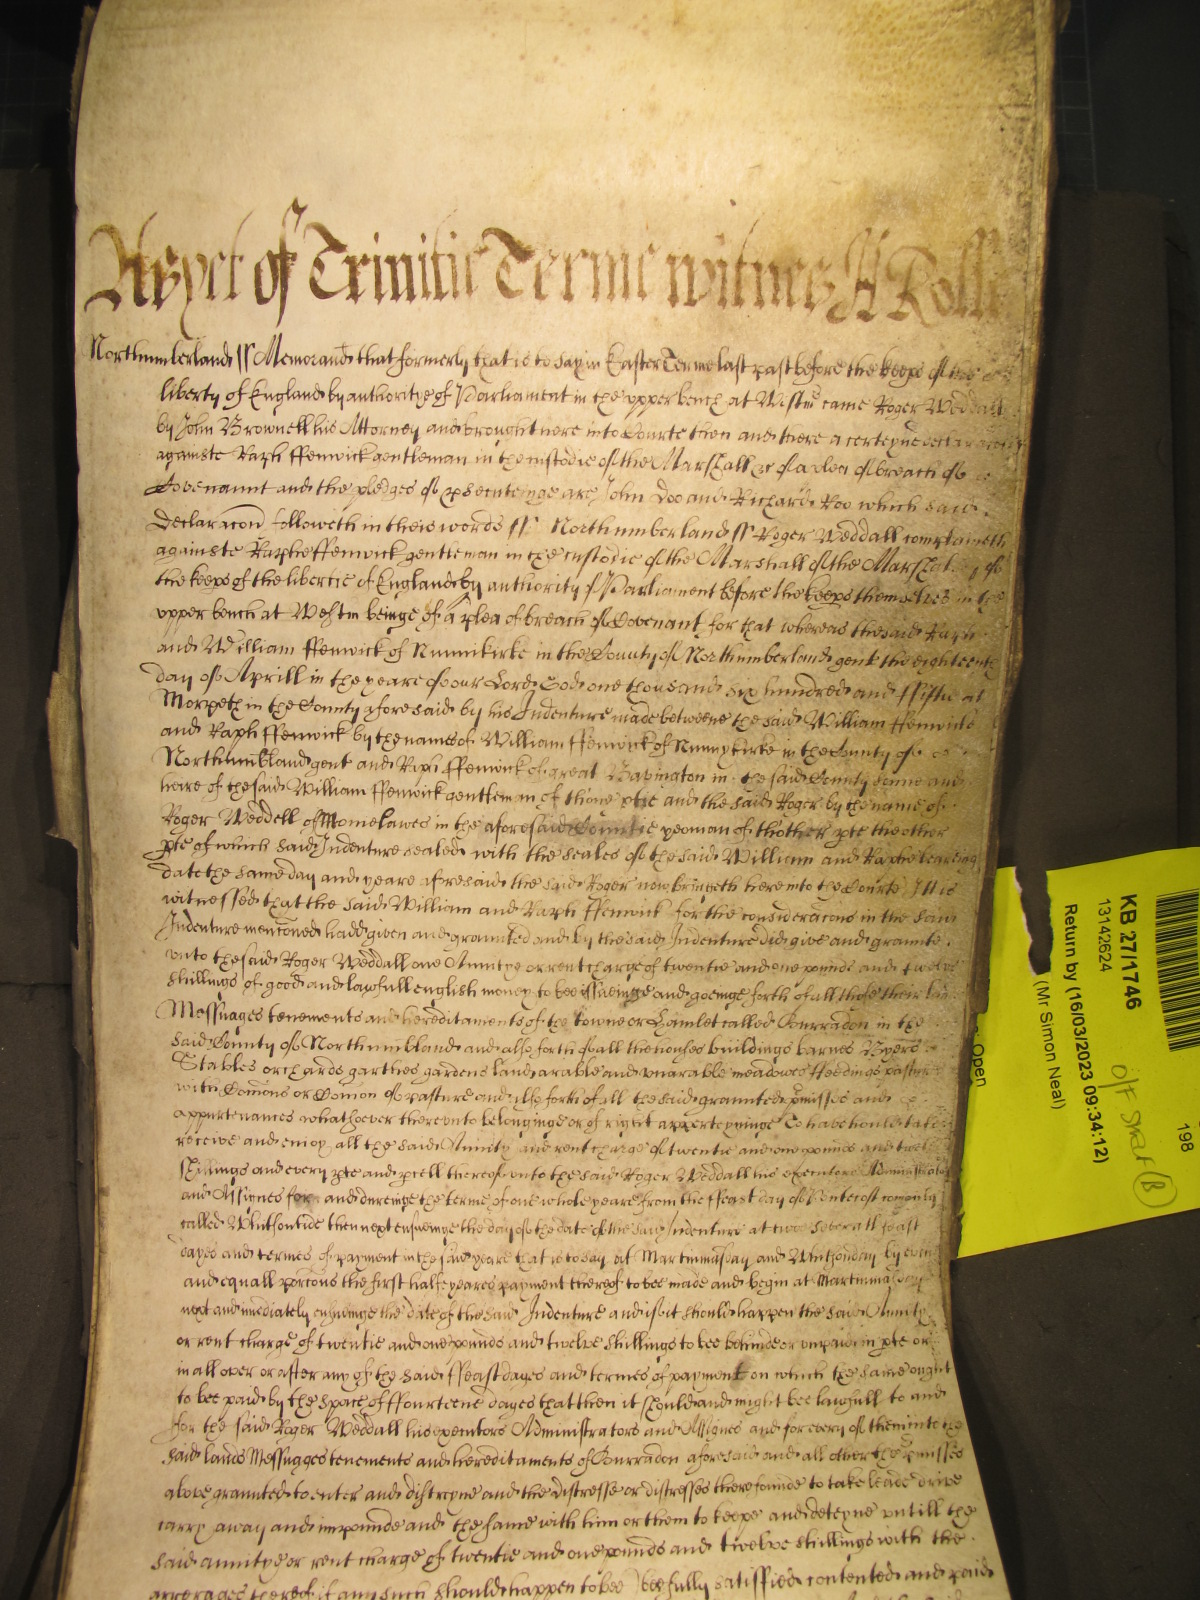 Yet of Trinitie Terme witnes H Rolle
Northumberland ss Memorand that formerly that is to say in Easter Terme last past before the keeps of the
liberty of England by authoritye of Parliament in the upper bench at Westm came Roger Weddall
by John Brownell his Attorney and brought here into Courte then and there a certeyne declaracon
againste Raph ffenwick gentleman in the custodie of the Marshall &c of a plea of breach of
Covenannt and the pledges of psecuteinge are John Doo and Richard Roo which said
declaracon followeth in theis words ss Northumberland ss Roger Weddall complaineth
againste Raphe ffenwick gentleman in the custodie of the Marshall of the Marshalsey of
the keeps of the libertie of England by authority of Parliament before the keeps themselves in the
upper bench at Westm beinge of a plea of breach of Covenant for that whereas the said Raph
and William ffenwick of Nunnikirke in the County of Northumberland gent the eighteenth
day of Aprill in the yeare of our Lord God one thousand six hundred and ffiftie at
Morpeth in the County aforesaid by his Indenture made betweene the said William ffenwick
and Raph ffenwick by the names of William ffenwick of Nunnykirke in the County of
Northumbland gent and Raph ffenwick of great Bavington in the said County sonne and
heire of the said William ffenwick gentleman of thone ptie and the said Roger by the name of
Roger Weddell of Momelawes in the aforesaid Countie yeoman of thother pte the other
pte of which said Indenture sealed with the seales of the said William and Raphe beareing
date the same day and yeare aforesaid the said Roger now bringeth here into the Courte Itt is
witnessed that the said William and Raph ffenwick for the consideracons in the said
Indenture mencioned hadd given and graunted and by the said Indenture did give and graunte
unto the said Roger Weddall one Anuitye or rent charge of twentie and one pounds and twelve
shillings of good and lawfull english money to bee issueinge and goeinge forth of all those their
Messuages tenements and hereditaments of the towne or Hamlet called Courradon in the
said County of Northumbland and also forth of all the houses buildings barnes Byers
Stables orchards garthes gardens land arable and unarable meadowes ffeedings pasture
with Comons or Comon of pasture and also forth of all the said graunted pmisses and
appurtenances whatsoever thereunto belonginge or of right apperteyninge To have hould take
receive and enioy all the said Anuity and rent charge of twentie and one pounds and twelve
shillings and every pte and pcell thereof unto the said Roger Weddall his executors Administrators
and Assignes for and dureinge the terme of one whole yeare from the ffeast day of Pentecost comonly
called Whitsontide then next ensueinge the day of the date of the said Indenture at two severall feast
dayes and termes of payment in the said yeare that is to say at Martinmas day and Whitsonday by even
and equall porcons the first halfe yeares payment thereof to bee made and begin at Martinmas day
next and imediately ensueinge the date of the said Indenture and if it should happen the said Anuity
or rent charge of twentie and one pounds and twelve shillings to bee behinde or unpaid in pte or
in all over or after any of the said ffeast dayes and termes of payment on which the same ought
to bee paid by the space of ffourteene dayes that then it should and might bee lawfull to and
for the said Roger Weddall his executors Administrators and Assignes and for every of them into the
said lands Messuages tenements and hereditaments of Courradon aforesaid and all other the pmisses
above graunted to enter and distreyne and the distresse or distresses there founde to take leade drive
carry away and impounde and the same with him or them to keepe and deteyne untill the
said anuitye or rent charge of twentie and one pounds and twelve shillings with the
arrerages thereof if any such should happen to bee bee fully satisfied contented and paid
KB 27/1746
13142624
Return by (16/03/2023 09:34:12)
(Mr Simon Neal)
Open
198
O/F Street (B)